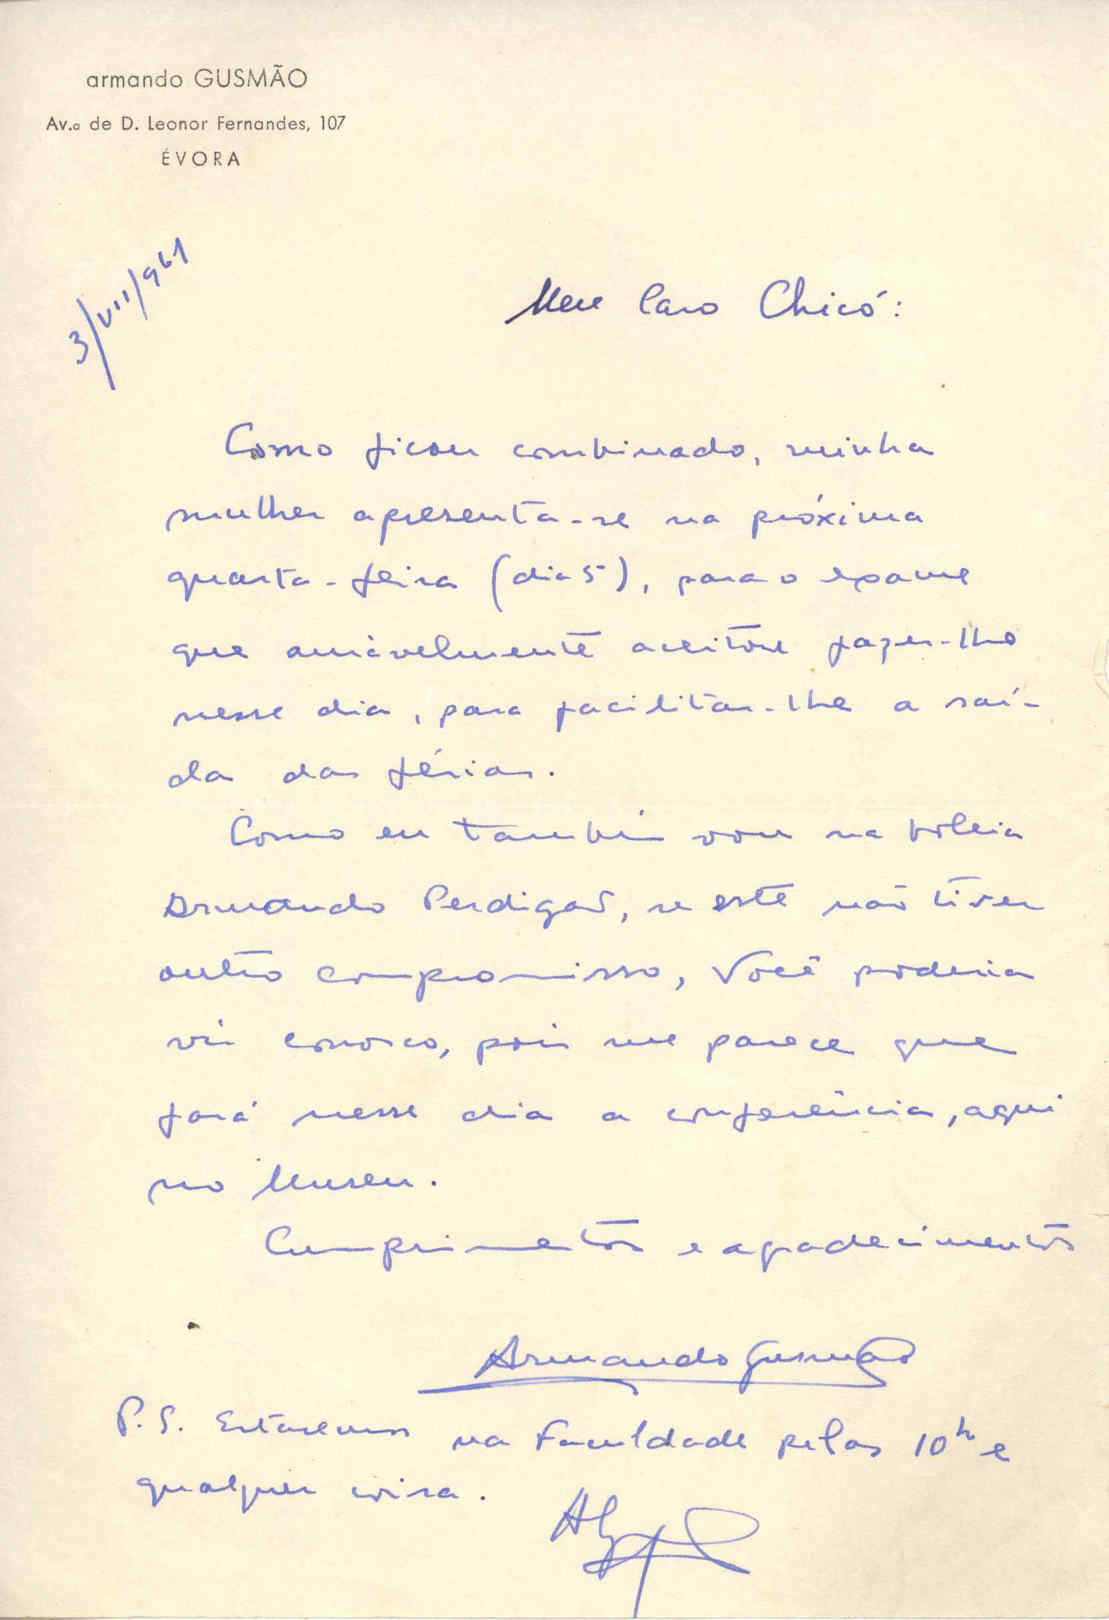 armando GUSMÃO
Av.a de D. Leonor Fernandes, 107
ÉVORA
3/VII/961
Meu Caro Chicó:
Como ficou combinado, minha
mulher apresenta-se na próxima
quarta-feira (dia 5), para o exame
que amàvelmente aceitou fazer-lhe
nesse dia, para facilitar-lhe a saí-
da das férias.
Como eu também vou na boleia
Armando Perdigão, se este não tiver
outro compromisso, Você poderia
vir conosco, pois me parece que
fará nesse dia a conferência, aqui
no Museu.
Cumprimentos e agradecimentos
Armando Gusmão
P.S. Estaremos na Faculdade pelas 10h e
qualquer coisa.
AG